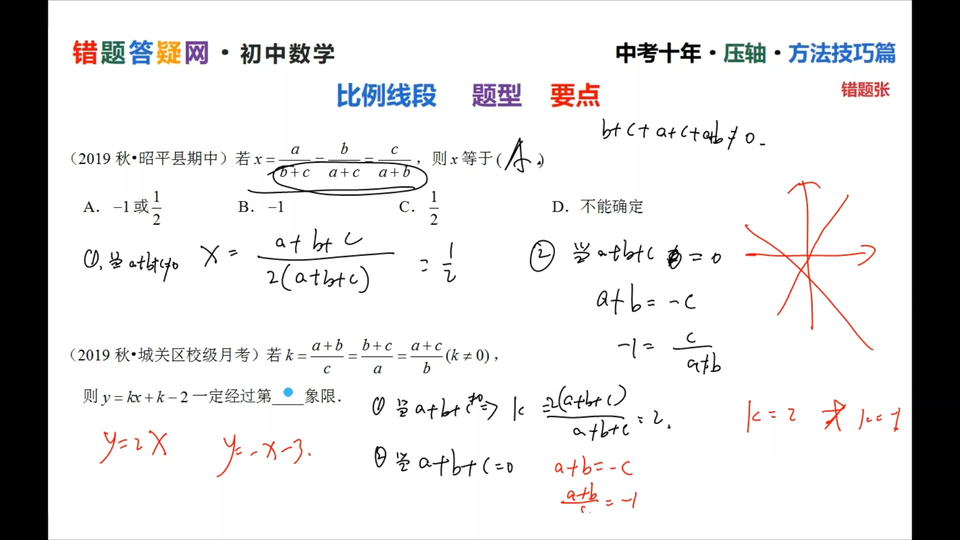 错题答疑网·初中数学
中考十年·压轴·方法技巧篇
比例线段 题型 要点
错题张
b+c+a+c+a+b≠0.
（2019 秋•昭平县期中）若 x = a/(b+c) = b/(a+c) = c/(a+b)，则 x 等于( A. )
A. −1 或 1/2 B. −1 C. 1/2 D. 不能确定
①, 当 a+b+c≠0 X = (a+b+c)/(2(a+b+c)) = 1/2
② 当 a+b+c = 0
a+b = -c
-1 = c/(a+b)
（2019 秋•城关区校级月考）若 k = (a+b)/c = (b+c)/a = (a+c)/b (k ≠ 0)，
则 y = kx + k − 2 一定经过第____象限.
① 当 a+b+c≠0 => k = 2(a+b+c)/(a+b+c) = 2.
k=2
y=2x y=-x-3.
② 当 a+b+c=0 a+b=-c
(a+b)/c = -1